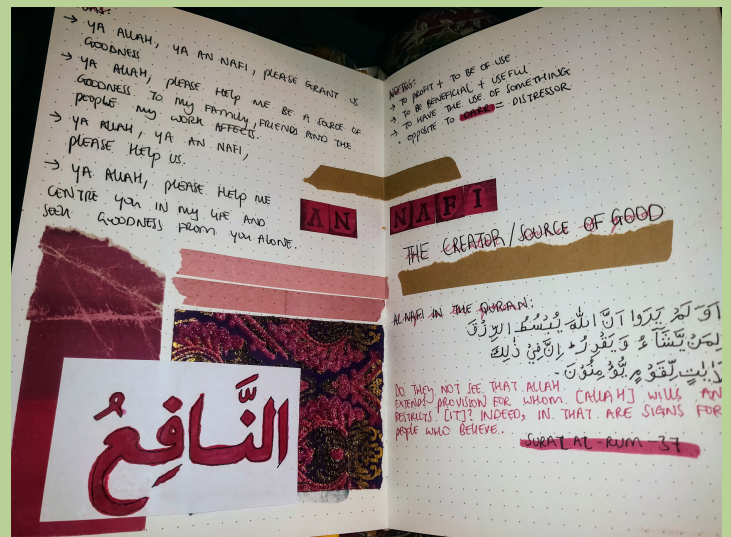 → YA ALLAH, YA AN NAFI, PLEASE GRANT US
GOODNESS
→ YA ALLAH, PLEASE HELP ME BE A SOURCE OF
GOODNESS TO MY FAMILY, FRIENDS AND THE
PEOPLE MY WORK AFFECTS.
→ YA ALLAH, YA AN NAFI,
PLEASE HELP US.
→ YA ALLAH, PLEASE HELP ME
CENTRE YOU IN MY LIFE AND
SEEK GOODNESS FROM YOU ALONE.
النَّافِعُ
NOTES:
→ TO PROFIT + TO BE OF USE
→ TO BE BENEFICIAL + USEFUL
→ TO HAVE THE USE OF SOMETHING
• OPPOSITE TO DARR = DISTRESSOR
AN NAFI
THE CREATOR/SOURCE OF GOOD
AL NAFI IN THE QURAN:
اَوَ لَمْ يَرَوْا اَنَّ اللّٰهَ يَبْسُطُ الرِّزْقَ
لِمَنْ يَّشَآءُ وَ يَقْدِرُ ؕ اِنَّ فِيْ ذٰلِكَ
لَاٰيٰتٍ لِّقَوْمٍ يُّؤْمِنُوْنَ
DO THEY NOT SEE THAT ALLAH
EXTENDS PROVISION FOR WHOM [ALLAH] WILLS AN
RESTRICTS [IT]? INDEED, IN THAT ARE SIGNS FOR
PEOPLE WHO BELIEVE.
SURAT AL-RUM-37